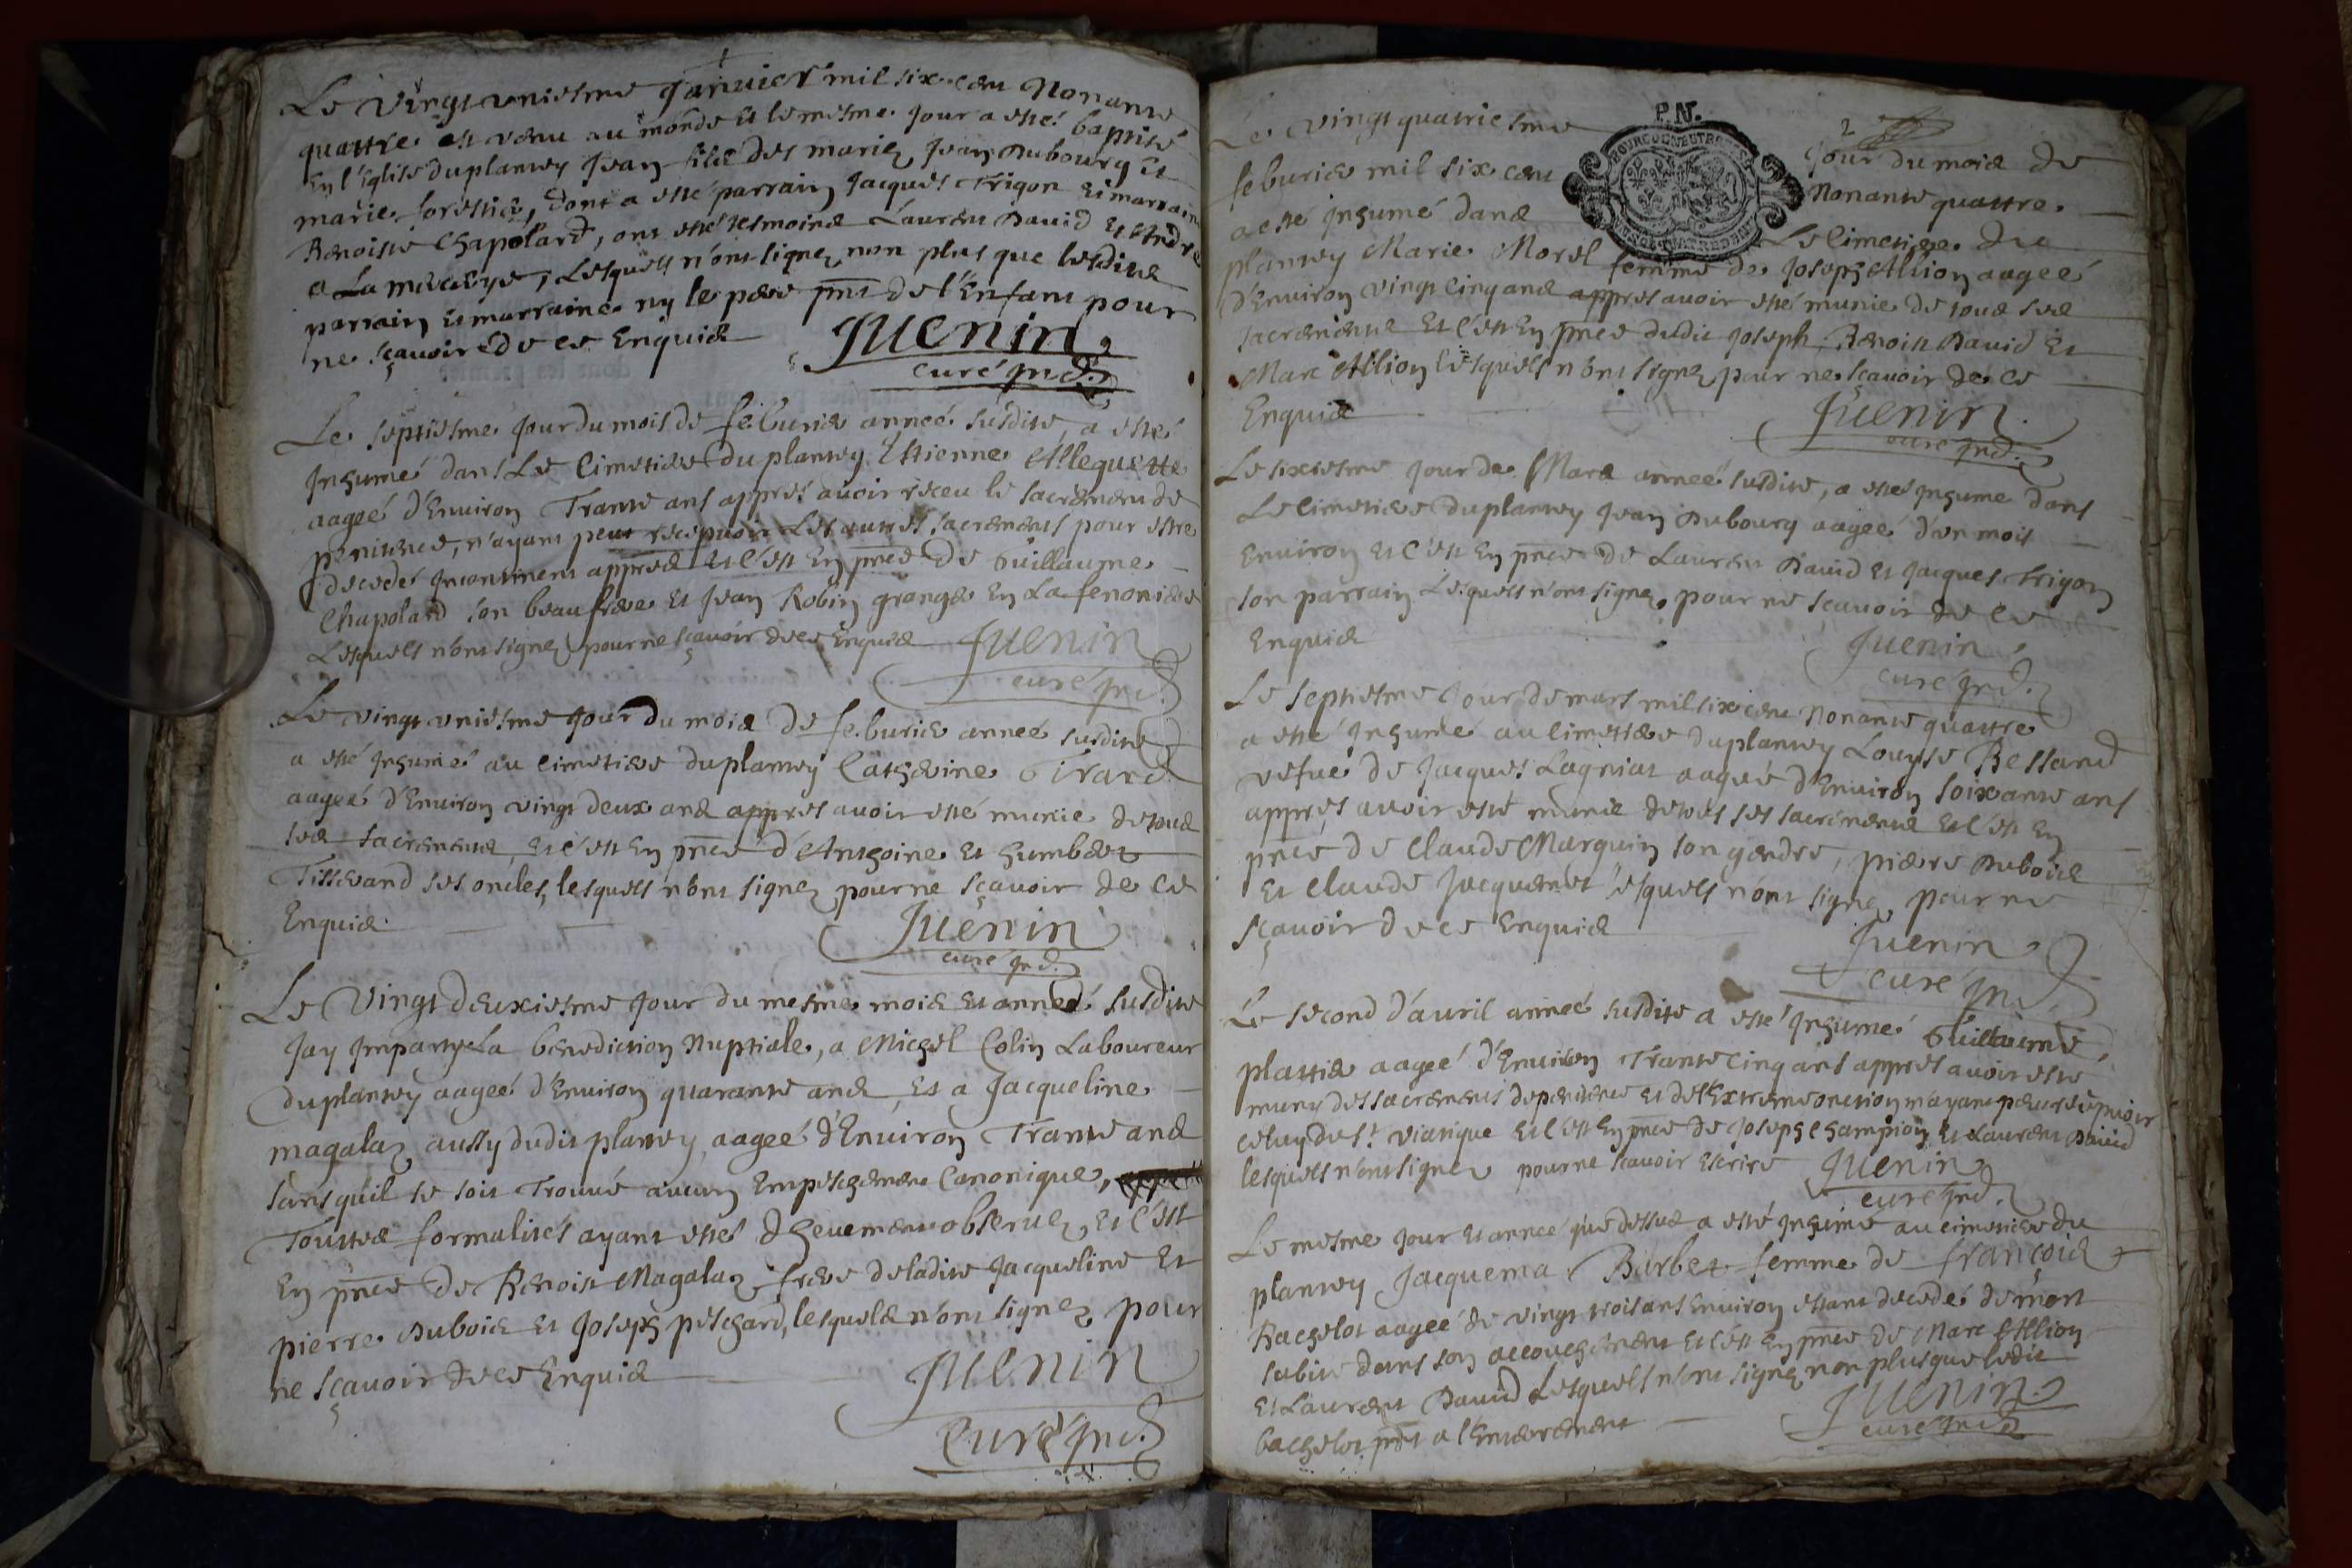 Le vingt vniesme Januier mil six cent Nonante
quattre est venu au monde et le mesme jour a esté baptisé
En l'Eglise du plantey Jean fils des mariez Jean Dubourg et
marie forestier, dont a esté parrain Jacques Trigon et marraine
Benoiste Chapolard, ont esté tesmoins Laurent Dauid et André
Lesquels n'ont signez non plus que lesdits
parrain et marraine ny le pere pnt de l'Enfant pour
ne sçauoir de ce Enquis
Juenin
curé jnd.
Le septiesme jour du mois de feburier anneé susdite, a esté
Jnhumé dans Le Cimetiere du plantey Estienne Alleguette
aageé d'Enuiron Trante ans appres auoir receu le sacrement de
penitence, n'ayant peut recepuoir Les autres sacrements pour estre
decedé Jncontinent appres Et c'est En pnce de Guillaume
Chapolard son beaufrere et Jean Robin granger En La fenoniere
Lesquels n'ont signez pour ne sçauoir de ce Enquis Juenin
curé jnd.
Le vingt vniesme jour du mois de feburier anneé susdite
a esté Jnhumé au Cimetiere du plantey Catherine Girard
aageé d'Enuiron vingt deux ans appres auoir esté munie de tous
ses sacrements, Et c'est En pnce d'Anthoine et humbert
Tisserand ses oncles, lesquels n'ont signez pour ne sçauoir de ce
Enquis
Juenin
curé jnd.
Le vingt deuxiesme jour du mesme mois et anneé susdite
Jay Jmparty La benediction Nuptiale, a Michel Colin Laboureur
du plantey aageé d'Enuiron quarante ans, Et a Jacqueline
magalaz aussy dudit plantey aageé d'Enuiron Trante ans
sans quil se soit Trouué aucun Empeschement Canonique,
Touttes formalités ayant esté dheuement obseruez, Et c'est
En pnce de Benoist Magalaz frere de ladite Jacqueline Et
pierre Dubois et Joseph peschard, lesquels n'ont signez pour
ne sçauoir de ce Enquis
Juenin
Curé jnd.
P.N.
2
Le vingt quatriesme jour du mois de
feburier mil six cent Nonante quattre
a esté jnhumé dans Le Cimetiere du
plantey Marie Morel femme de Joseph Allion aageé
d'Enuiron vingt cinq ans appres auoir esté munie de tous ses
sacrements Et c'est En pnce dudit Joseph, Benoist Dauid Et
Marc Allion lesquels n'ont signez pour ne sçauoir de ce
Enquis
Juenin
curé jnd.
Le sixiesme jour de Mars anneé susdite, a esté jnhumé dans
Le Cimetiere du plantey Jean Dubourg aageé d'un mois
Enuiron et c'est En pnce de Laurent Dauid et Jacques Trigon
son parrain Lesquels n'ont signez pour ne sçauoir de ce
Enquis
Juenin
curé jnd.
Le septiesme jour de mars mil six cent Nonante quattre
a esté jnhumé au Cimetiere du plantey Louyse Bessand
vefue de Jacques Lagniat aageé d'Enuiron soixante ans
appres auoir esté munie de tous ses sacrements Et c'est En
pnce de Claude Marguin son gendre, pierre Dubois
Et Claude Jacquemet lesquels n'ont signez pour ne
sçauoir de ce Enquis
Juenin
curé jnd.
Le second d'auril anneé susdite a esté jnhumé Guillaume
plattier aageé d'Enuiron Trante cinq ans appres auoir esté
muny des sacrements de penitence et de l'Extreme onction n'ayant peu recepuoir
celuy du st viatique Et c'est En pnce de Joseph Champion Et Laurent Dauid
lesquels n'ont signez pour ne sçauoir escrire Juenin
curé jnd.
Le mesme jour et anneé que dessus a esté jnhumé au cimetiere du
plantey Jacquema Barbet femme de françois
Bachelot aageé de vingt trois ans Enuiron estant decedé de mort
subite dans son accouchement et c'est En pnce de Marc Allion
et Laurent Dauid Lesquels n'ont signez non plus que ledit
bachelot pnt a l'Enterrement
Juenin
curé jnd.